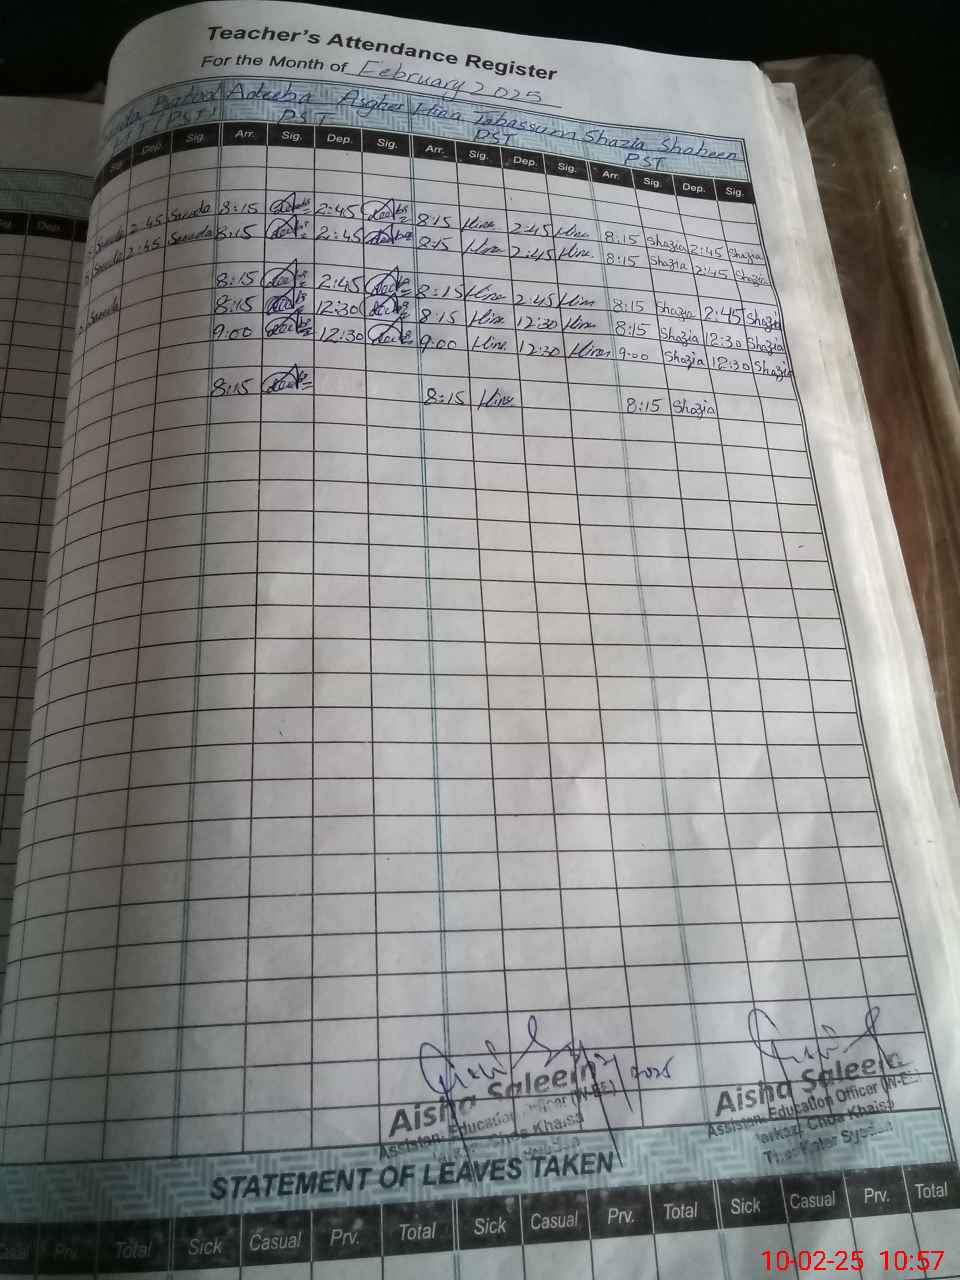 Teacher's Attendance Register
For the Month of February 2025
Adeeba Asgher Hina Tabassum Shazia Shaheen
(PST) PST PST PST
Dep. Sig. Arr. Sig. Dep. Sig. Arr. Sig. Dep. Sig. Arr. Sig. Dep. Sig.
2:45 8:15 2:45 8:15 Hina 2:45 Hina 8:15 Shazia 2:45 Shazia
2:45 8:15 2:45 8:15 Hina 2:45 Hina 8:15 Shazia 2:45 Shazia
8:15 2:45 8:15 Hina 2:45 Hina 8:15 Shazia 2:45 Shazia
8:15 12:30 8:15 Hina 12:30 Hina 8:15 Shazia 12:30 Shazia
9:00 12:30 9:00 Hina 12:30 Hina 9:00 Shazia 12:30 Shazia
8:15 8:15 Hina 8:15 Shazia
2025
Aisha Saleem Aisha Saleem
Assistant Education Officer (W-EE) Assistant Education Officer (W-EE)
Markaz Choa Khalsa Markaz Choa Khalsa
Syedan Kallar Syedan
STATEMENT OF LEAVES TAKEN
Casual Prv. Total Sick Casual Prv. Total Sick Casual Prv. Total Sick Casual Prv. Total
10-02-25 10:57